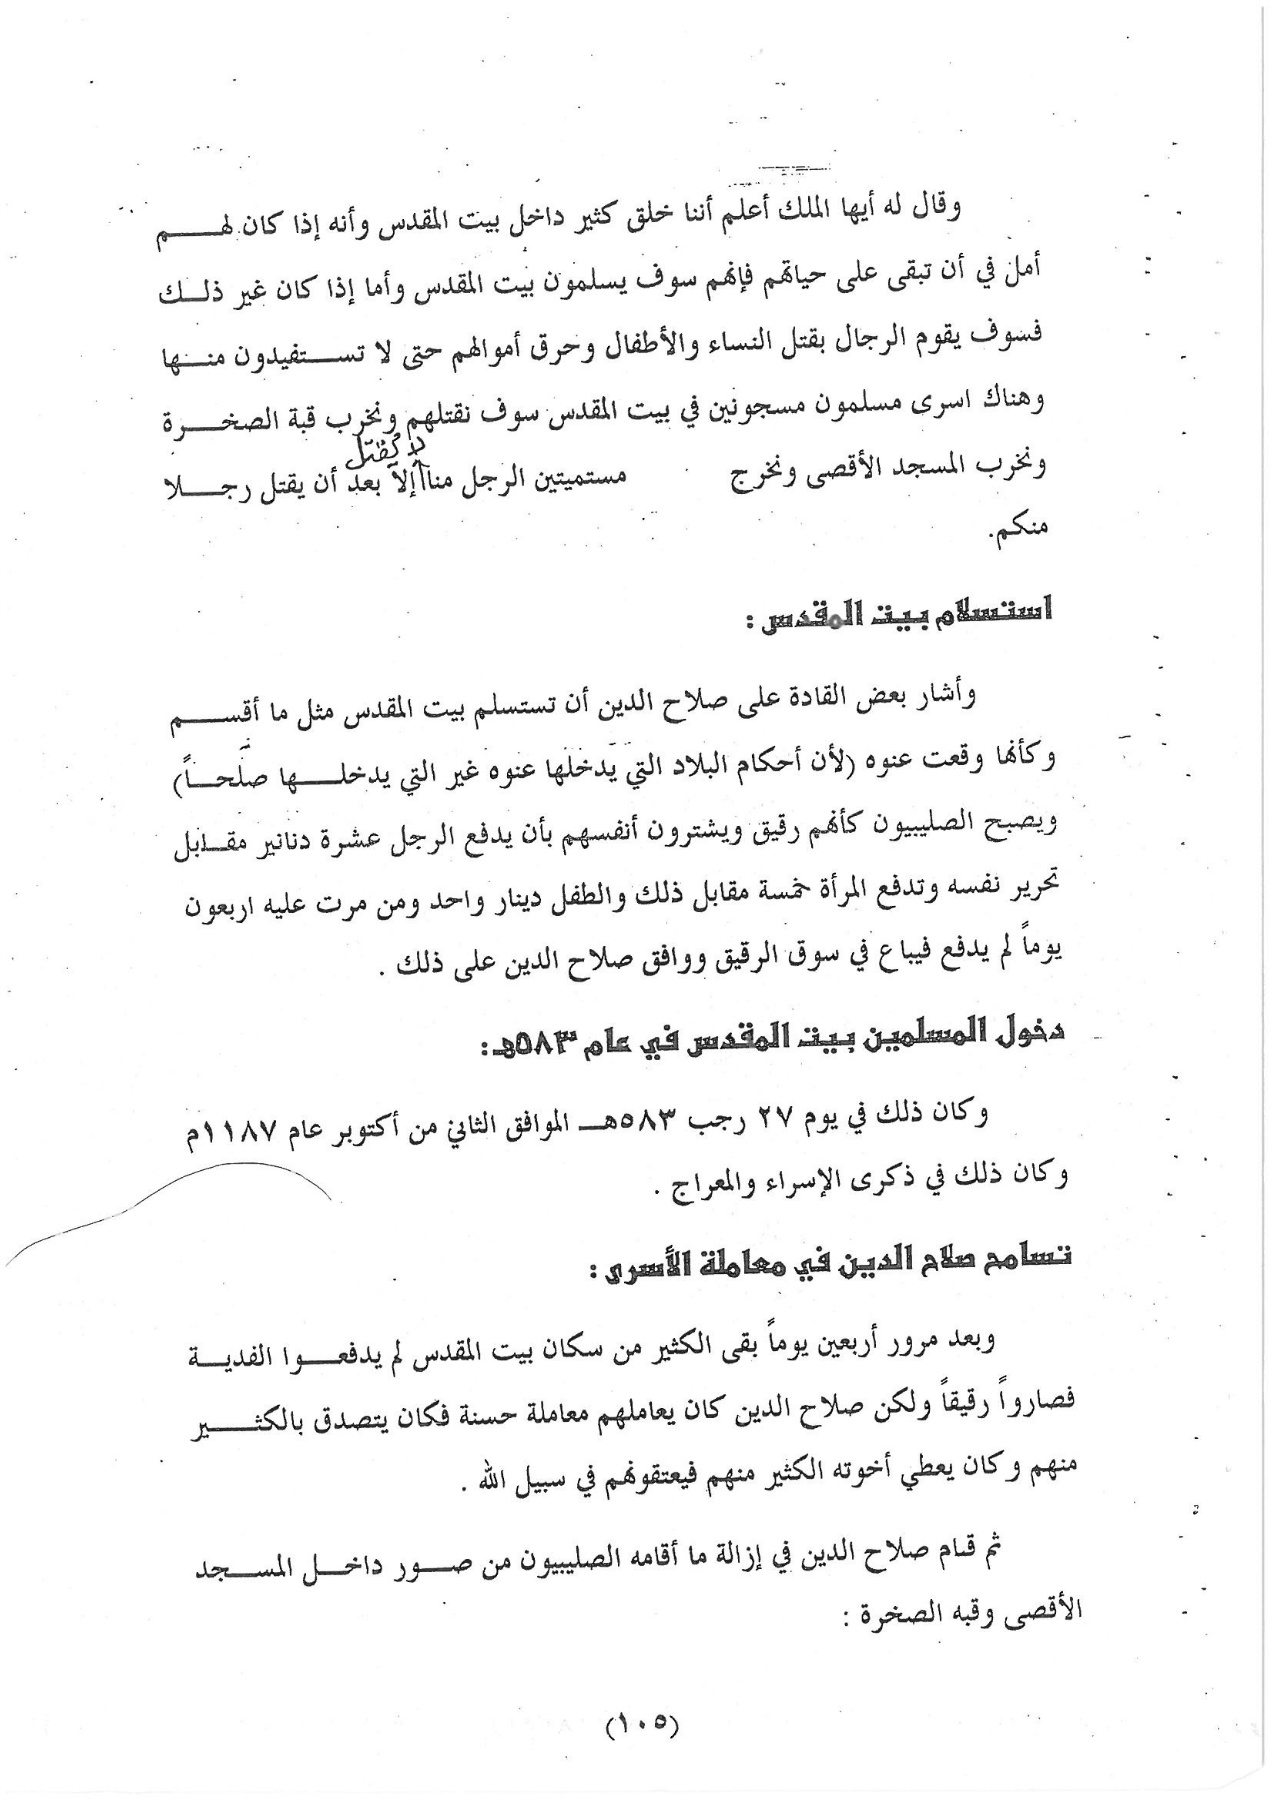 وقال له أيها الملك أعلم أننا خلق كثير داخل بيت المقدس وأنه إذا كان لهم
أمل في أن تبقى على حياتهم فإنهم سوف يسلمون بيت المقدس وأما إذا كان غير ذلك
فسوف يقوم الرجال بقتل النساء والأطفال وحرق أموالهم حتى لا تستفيدون منها
وهناك اسرى مسلمون مسجونين في بيت المقدس سوف نقتلهم ونخرب قبة الصخرة
لا يُقتل
ونخرب المسجد الأقصى ونخرج مستميتين الرجل منا إلا بعد أن يقتل رجلا
منكم.
استسلام بيت المقدس :
وأشار بعض القادة على صلاح الدين أن تستسلم بيت المقدس مثل ما أقسم
وكأنها وقعت عنوه (لأن أحكام البلاد التي يدخلها عنوه غير التي يدخلها صلحاً)
ويصبح الصليبيون كأنهم رقيق ويشترون أنفسهم بأن يدفع الرجل عشرة دنانير مقابل
تحرير نفسه وتدفع المرأة خمسة مقابل ذلك والطفل دينار واحد ومن مرت عليه اربعون
يوماً لم يدفع فيباع في سوق الرقيق ووافق صلاح الدين على ذلك .
دخول المسلمين بيت المقدس في عام ٥٨٣هـ:
وكان ذلك في يوم ٢٧ رجب ٥٨٣هـ الموافق الثاني من أكتوبر عام ١١٨٧م
وكان ذلك في ذكرى الإسراء والمعراج .
تسامح صلاح الدين في معاملة الأسرى :
وبعد مرور أربعين يوماً بقى الكثير من سكان بيت المقدس لم يدفعوا الفدية
فصارواً رقيقاً ولكن صلاح الدين كان يعاملهم معاملة حسنة فكان يتصدق بالكثير
منهم وكان يعطي أخوته الكثير منهم فيعتقونهم في سبيل الله .
ثم قام صلاح الدين في إزالة ما أقامه الصليبيون من صور داخل المسجد
الأقصى وقبه الصخرة :
(١٠٥)